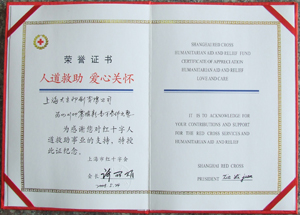 荣誉证书
人道救助 爱心关怀
上海
为感谢您对红十字人
道救助事业的支持，特授
此证纪念。
上海市红十字会
会长
SHANGHAI RED CROSS
HUMANITARIAN AID AND RELIEF FUND
CERTIFICATE OF APPRECIATION
HUMANITARIAN AID AND RELIEF
LOVE AND CARE
IT IS TO ACKNOWLEDGE
YOUR CONTRIBUTIONS AND SUPPORT
FOR THE RED CROSS SERVICES IN
HUMANITARIAN AID AND RELIEF
SHANGHAI RED CROSS
PRESIDENT